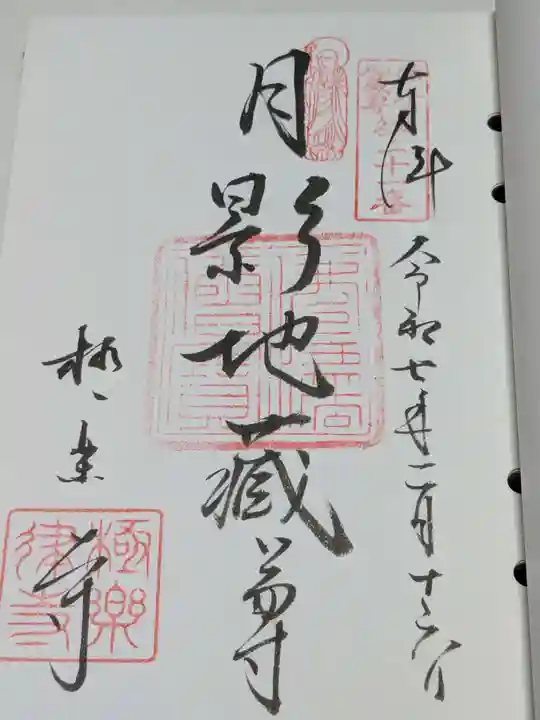 奉拝
令和七年二月十六日
月影地蔵尊
極楽寺
極楽律寺